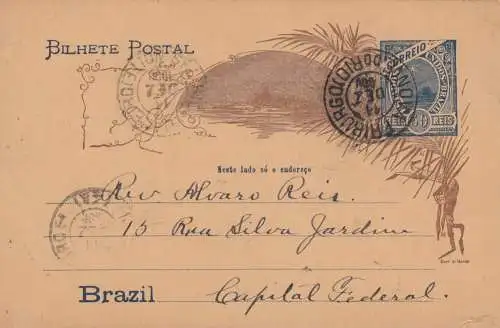 BILHETE POSTAL
CORREIO
REIS
REIS
Neste lado só o endereço
Rev Alvaro Reis.
15 Rua Silva Jardim
Brazil
Capital Federal.